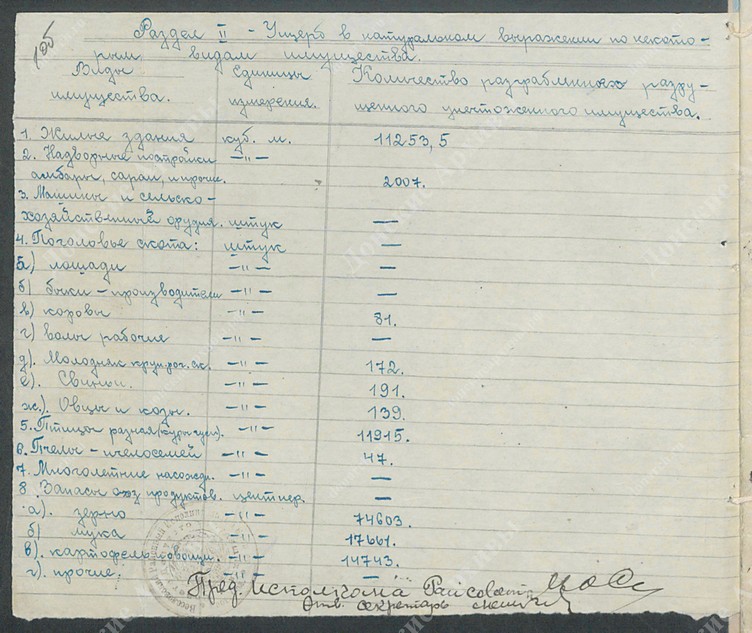 105
Раздел II - Ущерб в натуральном выражении по некото-
рым видам имущества.
Виды имущества. Единицы измерения. Количество разграбленного разру-
щенного уничтоженного имущества.
1. Жилые здания куб. м. 11253,5
2. Надворные постройки —"—
амбары, сараи, и прочие. 2007.
3. Машины и сельско-
хозяйственный орудия. штук —
4. Поголовье скота: штук —
а) лошади —"— —
б) быки - производители —"— —
в) коровы —"— 81.
г) волы рабочие —"— —
д). Молодняк круп. рог. ск. —"— 172.
е). Свиньи. —"— 191.
ж.). Овцы и козы. —"— 139.
5. Птицы разная (куры гуси). —"— 11915.
6. Пчелы - пчелосемей —"— 47.
7. Многолетние насожд. —"— —
8. Запасы схз продуктов. центнер.
а). зерно —"— 74603.
б) мука —"— 17661.
в). картофель и овощи. —"— 14743.
г). прочие. —"— —
Пред. исполкома Райсовета
Отв. секретарь